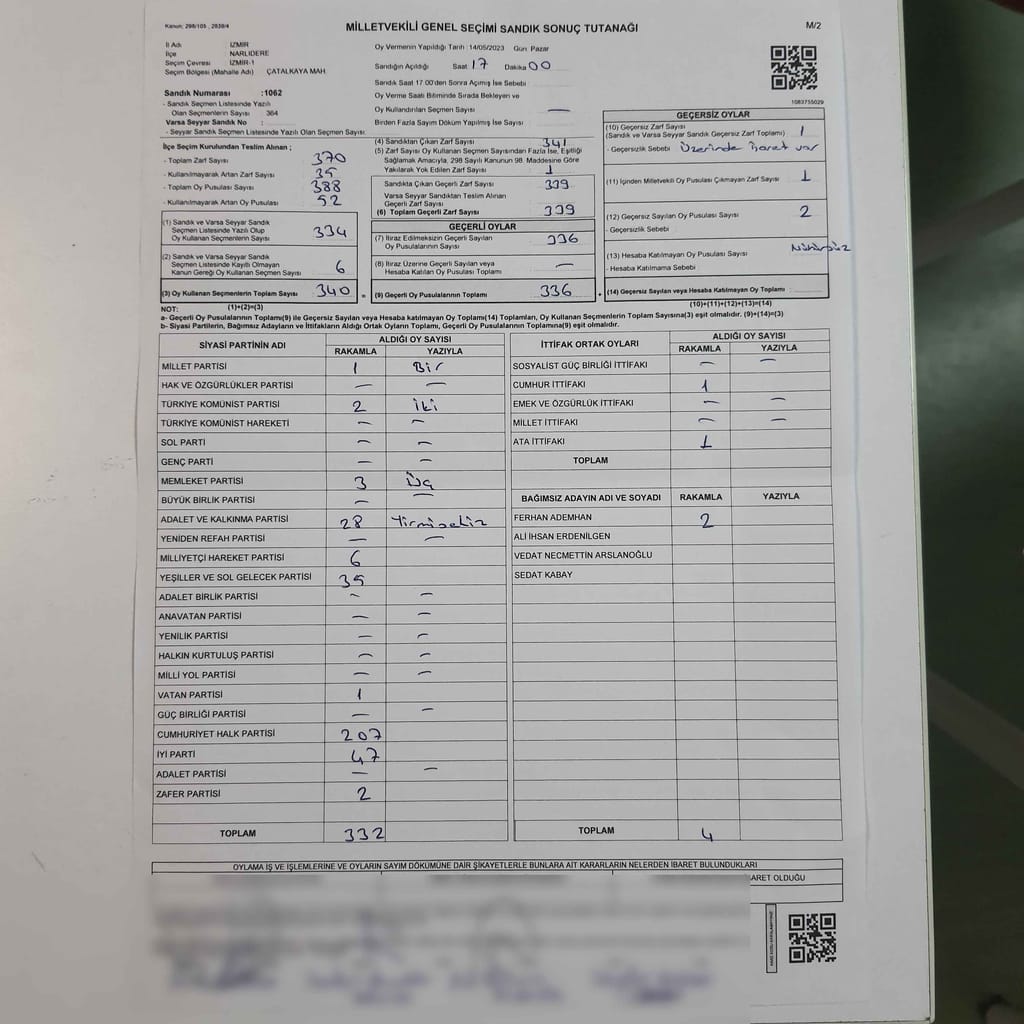 Kanun: 298/105 , 2839/4
MİLLETVEKİLİ GENEL SEÇİMİ SANDIK SONUÇ TUTANAĞI
M/2
İl Adı İZMİR
İlçe NARLIDERE
Seçim Çevresi İZMİR-1
Seçim Bölgesi (Mahalle Adı) ÇATALKAYA MAH
Oy Vermenin Yapıldığı Tarih :14/05/2023 Gün: Pazar
Sandığın Açıldığı Saat 17 Dakika 00
Sandık Saat 17:00'den Sonra Açımış İse Sebebi
Oy Verme Saati Bitiminde Sırada Bekleyen ve
Oy Kullandırılan Seçmen Sayısı —
Birden Fazla Sayım Döküm Yapılmış İse Sayısı
1083755029
Sandık Numarası :1062
- Sandık Seçmen Listesinde Yazılı
Olan Seçmenlerin Sayısı 364
Varsa Seyyar Sandık No :
- Seyyar Sandık Seçmen Listesinde Yazılı Olan Seçmen Sayısı:
İlçe Seçim Kurulundan Teslim Alınan ;
- Toplam Zarf Sayısı 370
- Kullanılmayarak Artan Zarf Sayısı
- Toplam Oy Pusulası Sayısı 388
- Kullanılmayarak Artan Oy Pusulası 52
(1) Sandık ve Varsa Seyyar Sandık
Seçmen Listesinde Yazılı Olup
Oy Kullanan Seçmenlerin Sayısı 334
(2) Sandık ve Varsa Seyyar Sandık
Seçmen Listesinde Kayıtlı Olmayan
Kanun Gereği Oy Kullanan Seçmen Sayısı 6
(3) Oy Kullanan Seçmenlerin Toplam Sayısı 340
(4) Sandıktan Çıkan Zarf Sayısı 341
(5) Zarf Sayısı Oy Kullanan Seçmen Sayısından Fazla İse, Eşitliği
Sağlamak Amacıyla, 298 Sayılı Kanunun 98. Maddesine Göre
Yakılarak Yok Edilen Zarf Sayısı 1
Sandıkta Çıkan Geçerli Zarf Sayısı 339
Varsa Seyyar Sandıktan Teslim Alınan
Geçerli Zarf Sayısı
(6) Toplam Geçerli Zarf Sayısı 339
GEÇERLİ OYLAR
(7) İtiraz Edilmeksizin Geçerli Sayılan
Oy Pusulalarının Sayısı 336
(8) İtiraz Üzerine Geçerli Sayılan veya
Hesaba Katılan Oy Pusulası Toplamı —
= (9) Geçerli Oy Pusulalarının Toplamı 336
GEÇERSİZ OYLAR
(10) Geçersiz Zarf Sayısı
(Sandık ve Varsa Seyyar Sandık Geçersiz Zarf Toplamı) 1
- Geçersizlik Sebebi Üzerinde işaret var
(11) İçinden Milletvekili Oy Pusulası Çıkmayan Zarf Sayısı 1
(12) Geçersiz Sayılan Oy Pusulası Sayısı 2
- Geçersizlik Sebebi
(13) Hesaba Katılmayan Oy Pusulası Sayısı Mühürsüz
- Hesaba Katılmama Sebebi
(14) Geçersiz Sayılan veya Hesaba Katılmayan Oy Toplamı :
NOT: (1)+(2)=(3) (10)+(11)+(12)+(13)=(14)
a- Geçerli Oy Pusulalarının Toplamı(9) ile Geçersiz Sayılan veya Hesaba katılmayan Oy Toplamı(14) Toplamları, Oy Kullanan Seçmenlerin Toplam Sayısına(3) eşit olmalıdır. (9)+(14)=(3)
b- Siyasi Partilerin, Bağımsız Adayların ve İttifakların Aldığı Ortak Oyların Toplamı, Geçerli Oy Pusulalarının Toplamına(9) eşit olmalıdır.
SİYASİ PARTİNİN ADI ALDIĞI OY SAYISI
RAKAMLA YAZIYLA
MİLLET PARTİSİ 1 Bir
HAK VE ÖZGÜRLÜKLER PARTİSİ — —
TÜRKİYE KOMÜNİST PARTİSİ 2 İki
TÜRKİYE KOMÜNİST HAREKETİ — —
SOL PARTİ — —
GENÇ PARTİ — —
MEMLEKET PARTİSİ 3 Üç
BÜYÜK BİRLİK PARTİSİ — —
ADALET VE KALKINMA PARTİSİ 28 Yirmisekiz
YENİDEN REFAH PARTİSİ — —
MİLLİYETÇİ HAREKET PARTİSİ 6
YEŞİLLER VE SOL GELECEK PARTİSİ 35
ADALET BİRLİK PARTİSİ — —
ANAVATAN PARTİSİ — —
YENİLİK PARTİSİ — —
HALKIN KURTULUŞ PARTİSİ — —
MİLLİ YOL PARTİSİ — —
VATAN PARTİSİ 1
GÜÇ BİRLİĞİ PARTİSİ — —
CUMHURİYET HALK PARTİSİ 207
İYİ PARTİ 47
ADALET PARTİSİ — —
ZAFER PARTİSİ 2
TOPLAM 332
İTTİFAK ORTAK OYLARI ALDIĞI OY SAYISI
RAKAMLA YAZIYLA
SOSYALİST GÜÇ BİRLİĞİ İTTİFAKI — —
CUMHUR İTTİFAKI 1
EMEK VE ÖZGÜRLÜK İTTİFAKI — —
MİLLET İTTİFAKI — —
ATA İTTİFAKI 1
TOPLAM
BAĞIMSIZ ADAYIN ADI VE SOYADI RAKAMLA YAZIYLA
FERHAN ADEMHAN 2
ALİ İHSAN ERDENİLGEN
VEDAT NECMETTİN ARSLANOĞLU
SEDAT KABAY
TOPLAM 4
OYLAMA İŞ VE İŞLEMLERİNE VE OYLARIN SAYIM DÖKÜMÜNE DAİR ŞİKAYETLERLE BUNLARA AİT KARARLARIN NELERDEN İBARET BULUNDUKLARI
BARET OLDUĞU